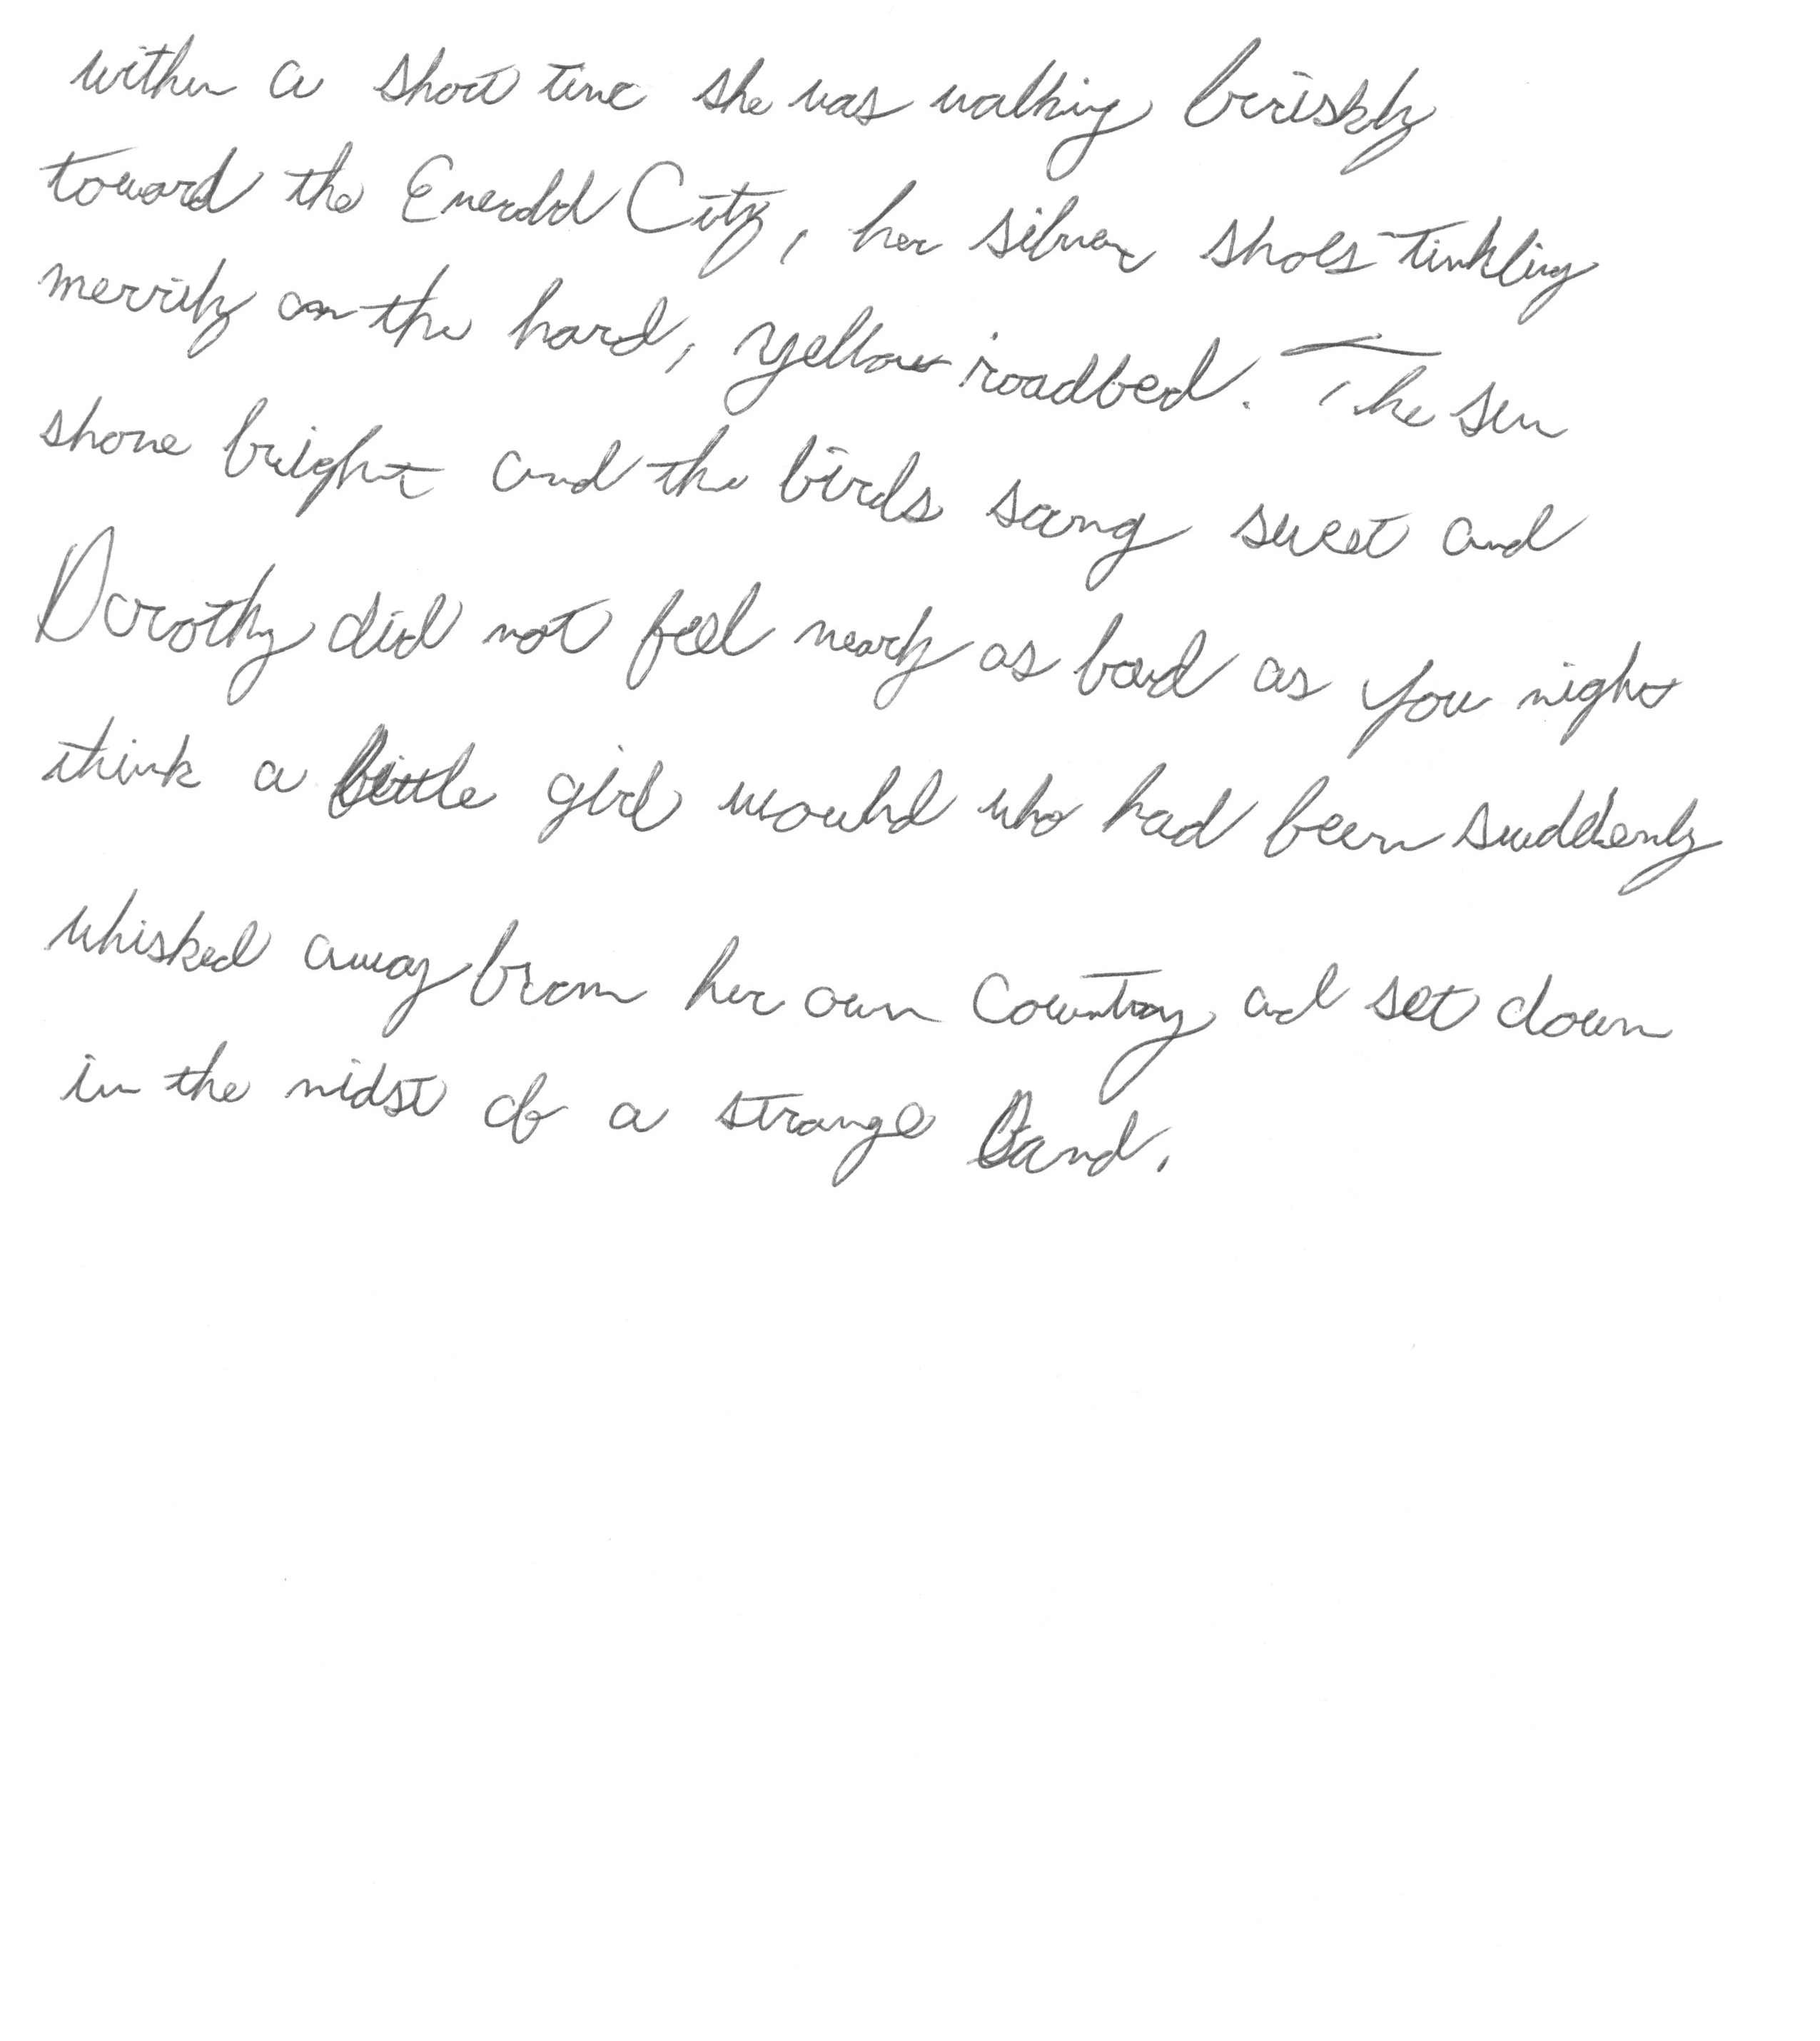 within a short time she was walking briskly
toward the Emerald City, her silver shoes tinkling
merrily on the hard, yellow roadbed. The sun
shone bright and the birds sang sweet and
Dorothy did not feel nearly as bad as you might
think a little girl would who had been suddenly
whisked away from her own country and set down
in the midst of a strange land.